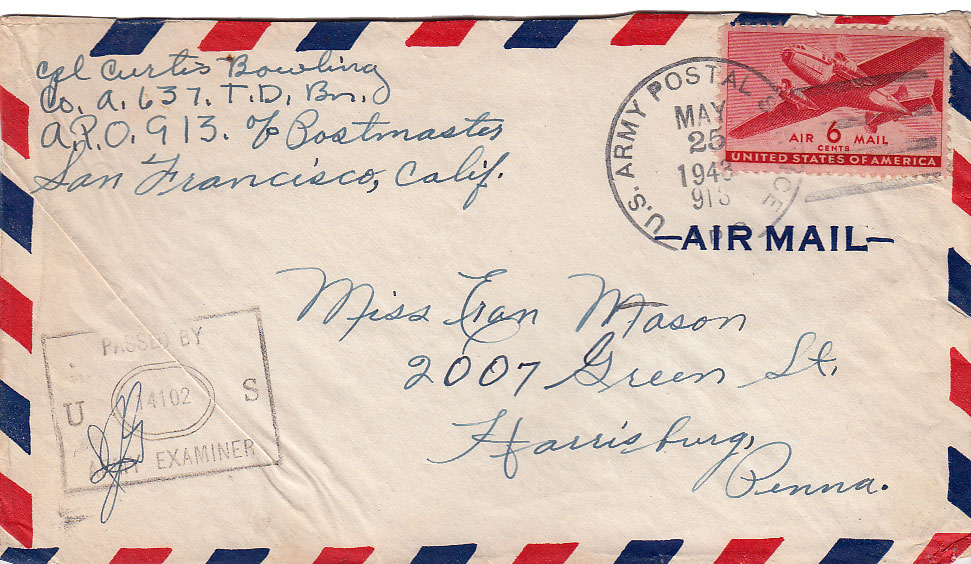 Cpl Curtis Bowling
Co. A. 637. T.D. Bn.
A.P.O. 913. c/o Postmaster
San Francisco, Calif.
U.S. ARMY POSTAL
MAY
25
1943
913
AIR 6 MAIL
CENTS
UNITED STATES OF AMERICA
—AIR MAIL—
Miss Fran Mason
2007 Green St.
Harrisburg,
Penna.
PASSED BY
U 14102 S
ARMY EXAMINER